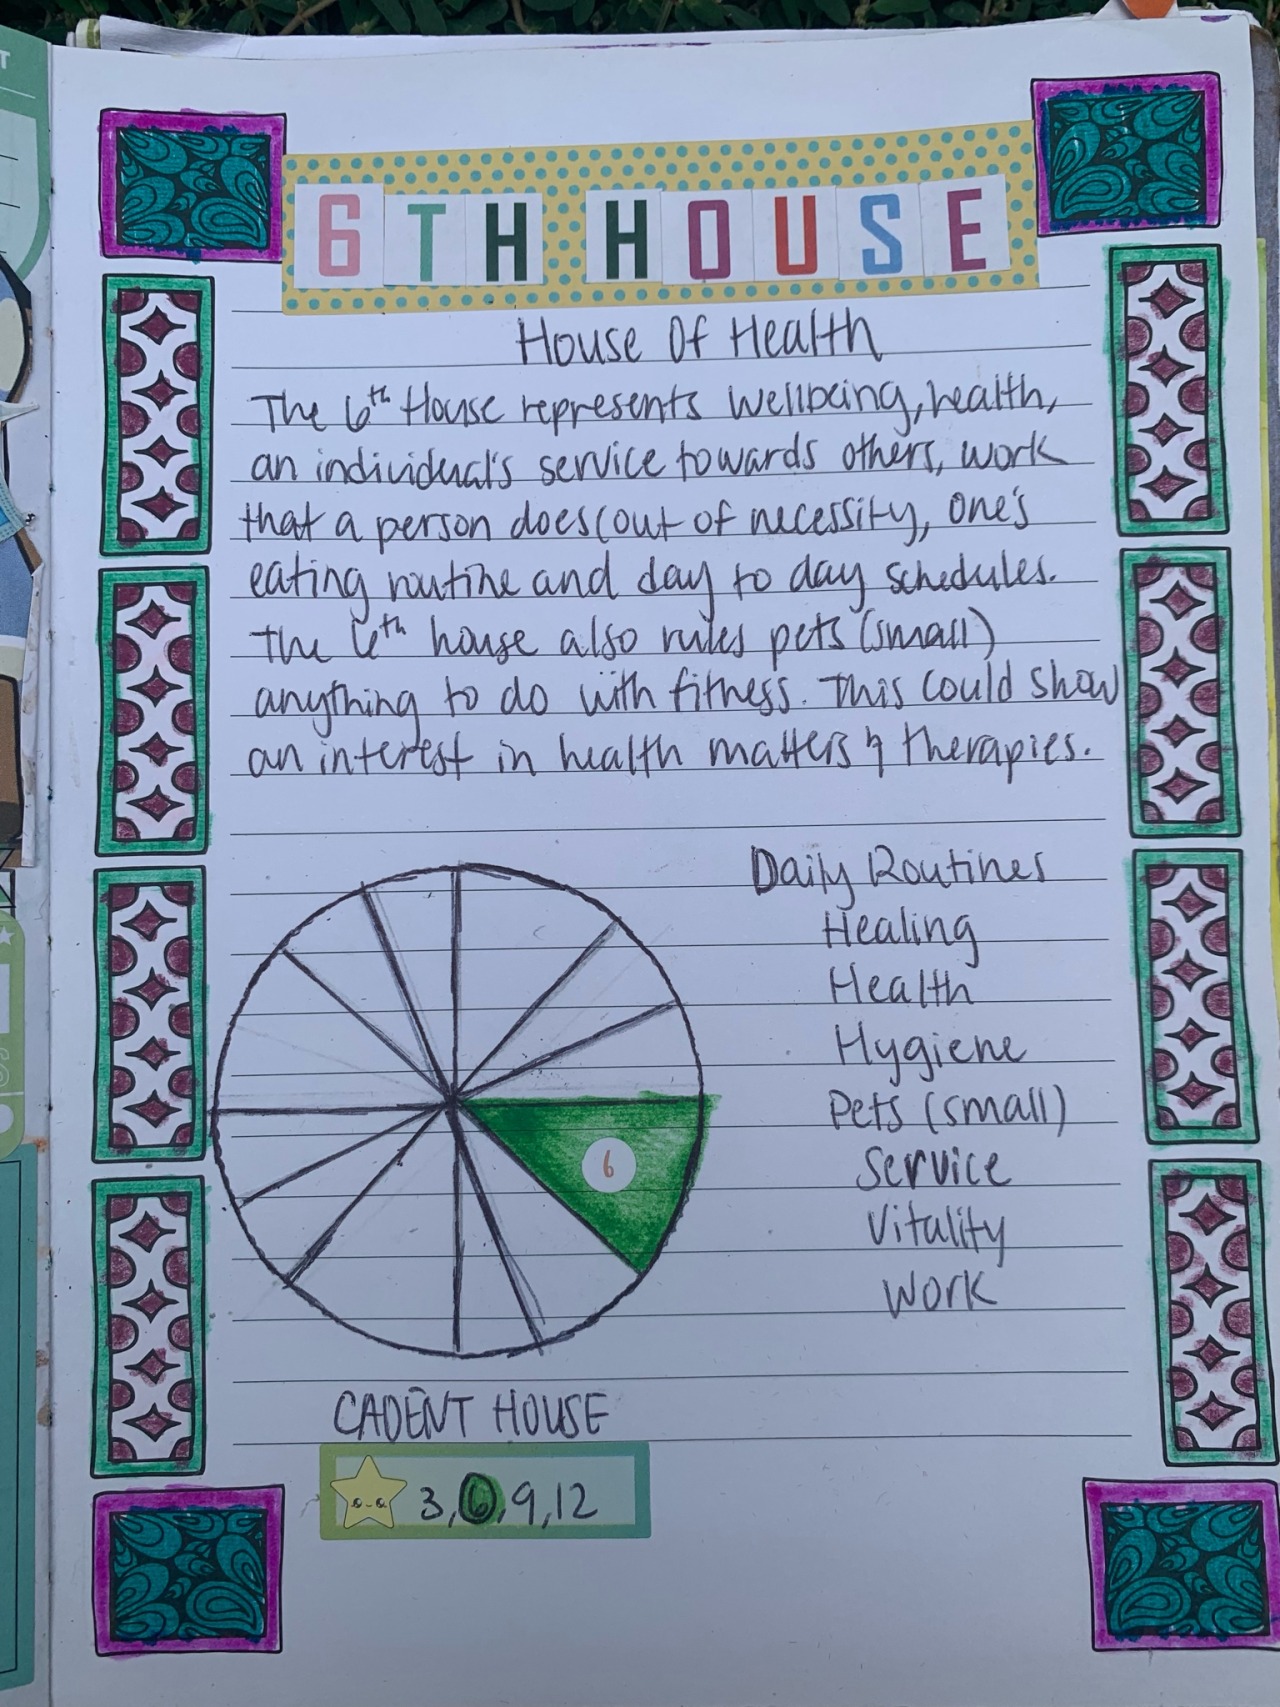 6TH HOUSE
House Of Health
The 6th House represents wellbeing, health,
an individual's service towards others, work
that a person does (out of necessity, one's
eating routine and day to day schedules.
The 6th house also rules pets (small)
anything to do with fitness. This could show
an interest in health matters & therapies.
Daily Routines
Healing
Health
Hygiene
Pets (small)
Service
Vitality
Work
6
CADENT HOUSE
3, 6, 9, 12